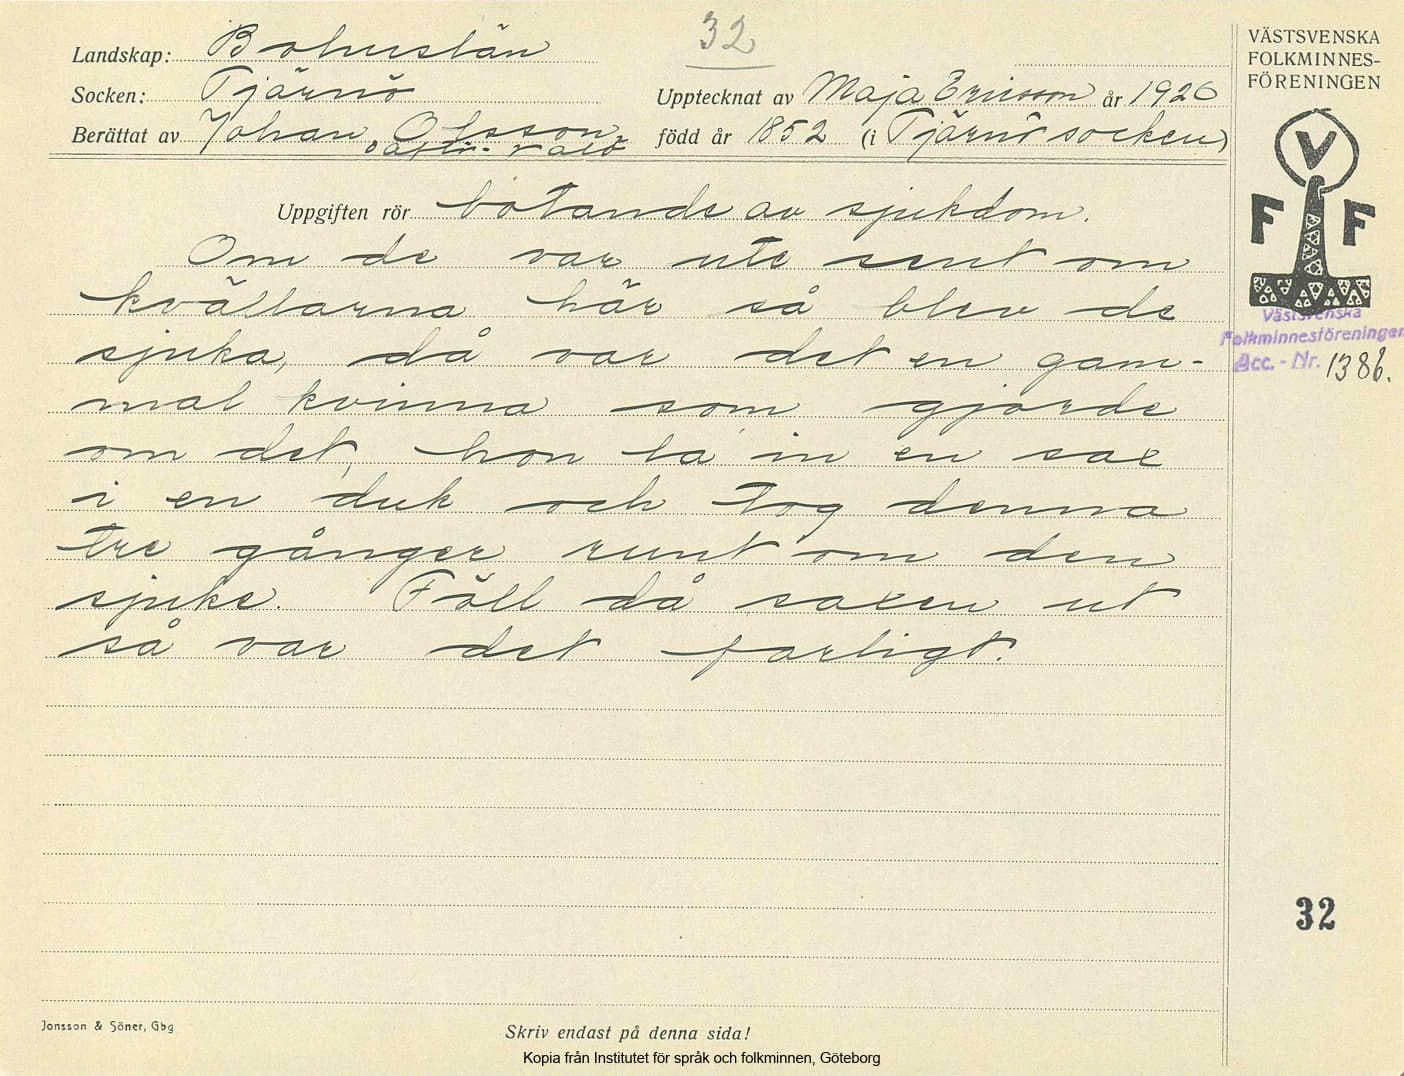 32
VÄSTSVENSKA
FOLKMINNES-
FÖRENINGEN
Landskap: Bohuslän
Socken: Tjärnö
Upptecknat av Maja Ericsson år 1926
Berättat av Johan Olsson född år 1852 (i Tjärnö socken)
V
F F
Uppgiften rör botande av sjukdom.
Om de var ute sent om
kvällarna här så blev de
sjuka, då var det en gam-
mal kvinna som gjorde
om det, hon la in en sax
i en duk och tog denna
tre gånger runt om den
sjuke. Föll då saxen ut
så var det farligt.
Västsvenska
Folkminnesföreningen
Acc. - Nr. 1386.
32
Jonsson & Söner, Gbg
Skriv endast på denna sida!
Kopia från Institutet för språk och folkminnen, Göteborg